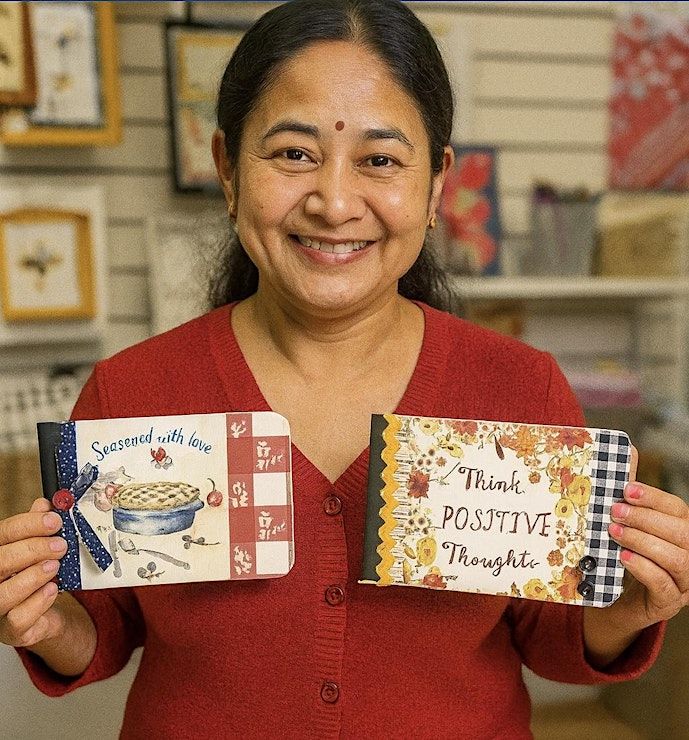 Seasoned with love
Think
POSITIVE
Thoughts